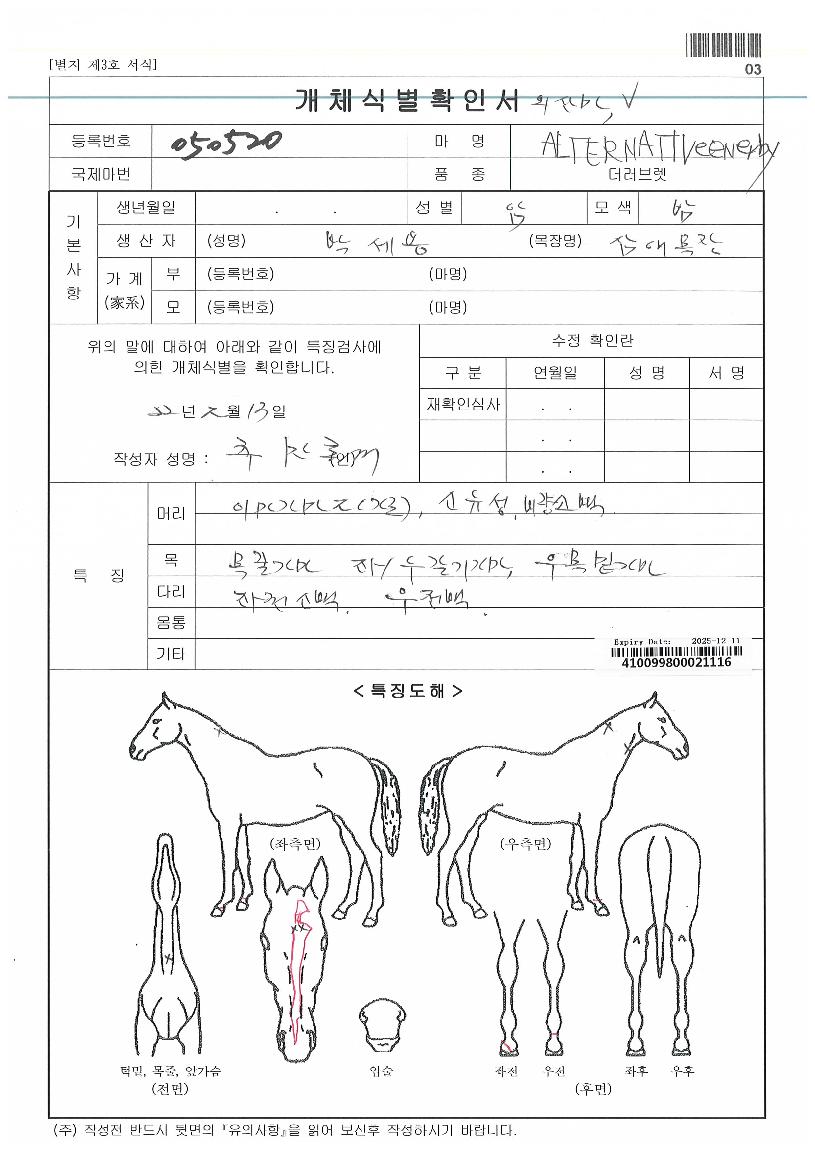 [별지 제3호 서식]
03
개체식별확인서
등록번호 050520 마 명 ALTERNATIVE
국제마번 품 종 더러브렛
기본사항
생년월일 . . 성 별 암 모 색 밤
생 산 자 (성명) 박 세 용 (목장명) 삼 대 목장
가 계 (家系) 부 (등록번호) (마명)
모 (등록번호) (마명)
위의 말에 대하여 아래와 같이 특징검사에
의힌 개체식별을 확인합니다.
22 년 2 월 13 일
작성자 성명 : (인)
수정 확인란
구 분 연월일 성 명 서 명
재확인심사 . .
. .
. .
특 징
머리 유성, 비량소백
목
다리 좌전소백. 우전백.
몸통
기타
Expiry Date: 2025-12-11
410099800021116
< 특징도해 >
(좌측면) (우측면)
턱밑, 목줄, 앞가슴 입술 좌전 우전 좌후 우후
(전면) (후면)
(주) 작성전 반드시 뒷면의 『유의시항』을 읽어 보신후 작성하시기 바랍니다.